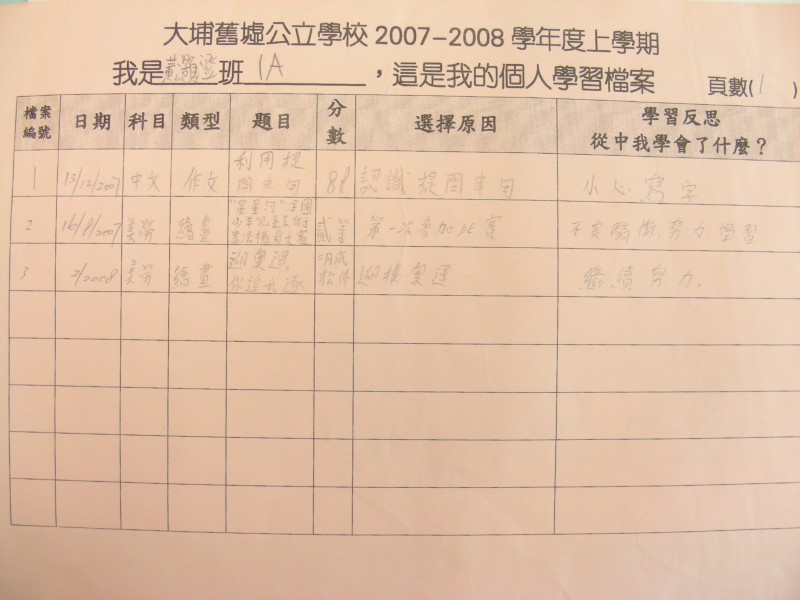 大埔舊墟公立學校 2007-2008 學年度上學期
我是 班 1A ，這是我的個人學習檔案 頁數( 1 )
檔案編號 日期 科目 類型 題目 分數 選擇原因 學習反思 從中我學會了什麼？
1 13/12/2007 中文 作文 利用提問 句 88 認識提問 句 小心寫字
2 16/8/2007 美勞 繪畫 "星星河"全國少年兒童美術書法 貳等 第一次參加比賽 不要驕傲，努力學習
3 2/2008 美勞 繪畫 迎奧運， 迎接奧運 繼續努力．